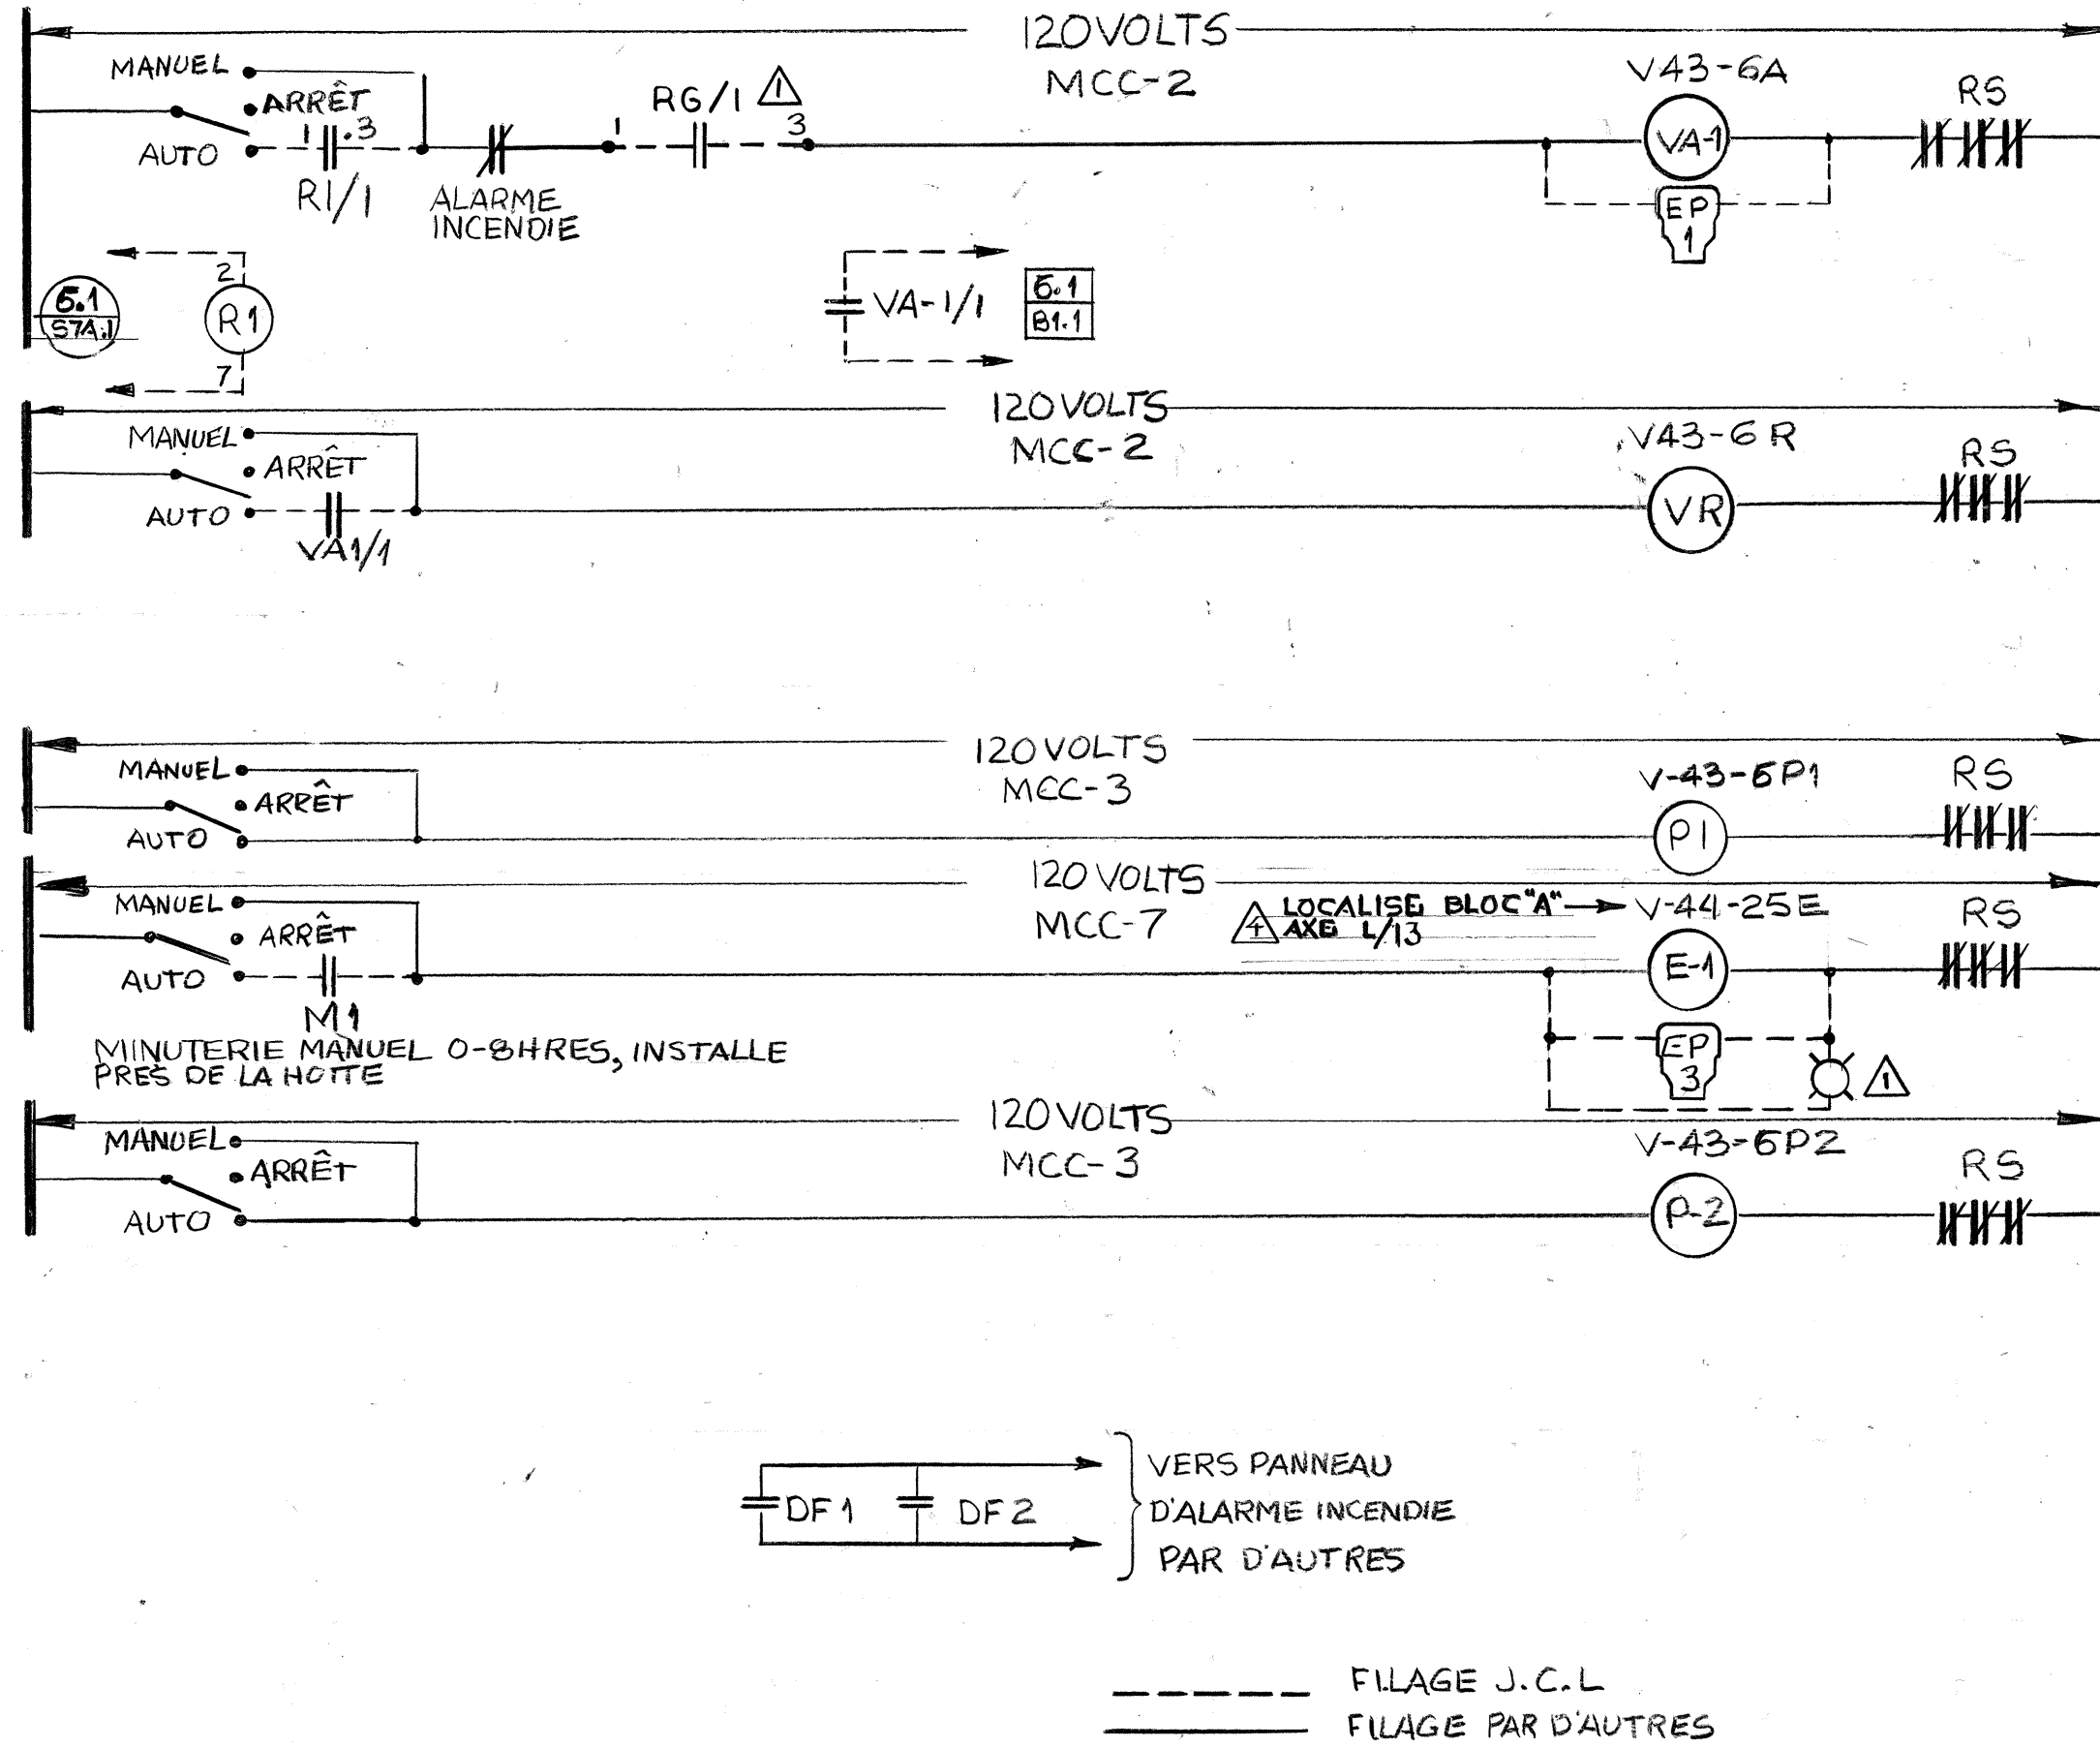 120VOLTS
MCC-2
MANUEL
ARRÊT
AUTO
1 .3
R1/1
ALARME
INCENDIE
1
RG/1 1
3
V43-6A
VA-1
EP
1
RS
6.1
S7A.1
2
R1
7
VA-1/1
6.1
B1.1
120VOLTS
MCC-2
MANUEL
ARRÊT
AUTO
VA1/1
V43-6R
VR
RS
120VOLTS
MCC-3
MANUEL
ARRÊT
AUTO
V-43-6P1
P1
RS
120VOLTS
MCC-7
MANUEL
ARRÊT
AUTO
M1
MINUTERIE MANUEL 0-8HRES, INSTALLE
PRES DE LA HOTTE
4 LOCALISE BLOC "A"
AXE L/13
V-44-25E
E-1
EP
3
1
RS
120VOLTS
MCC-3
MANUEL
ARRÊT
AUTO
V-43-6P2
P-2
RS
DF1
DF2
VERS PANNEAU
D'ALARME INCENDIE
PAR D'AUTRES
FILAGE J.C.L
FILAGE PAR D'AUTRES